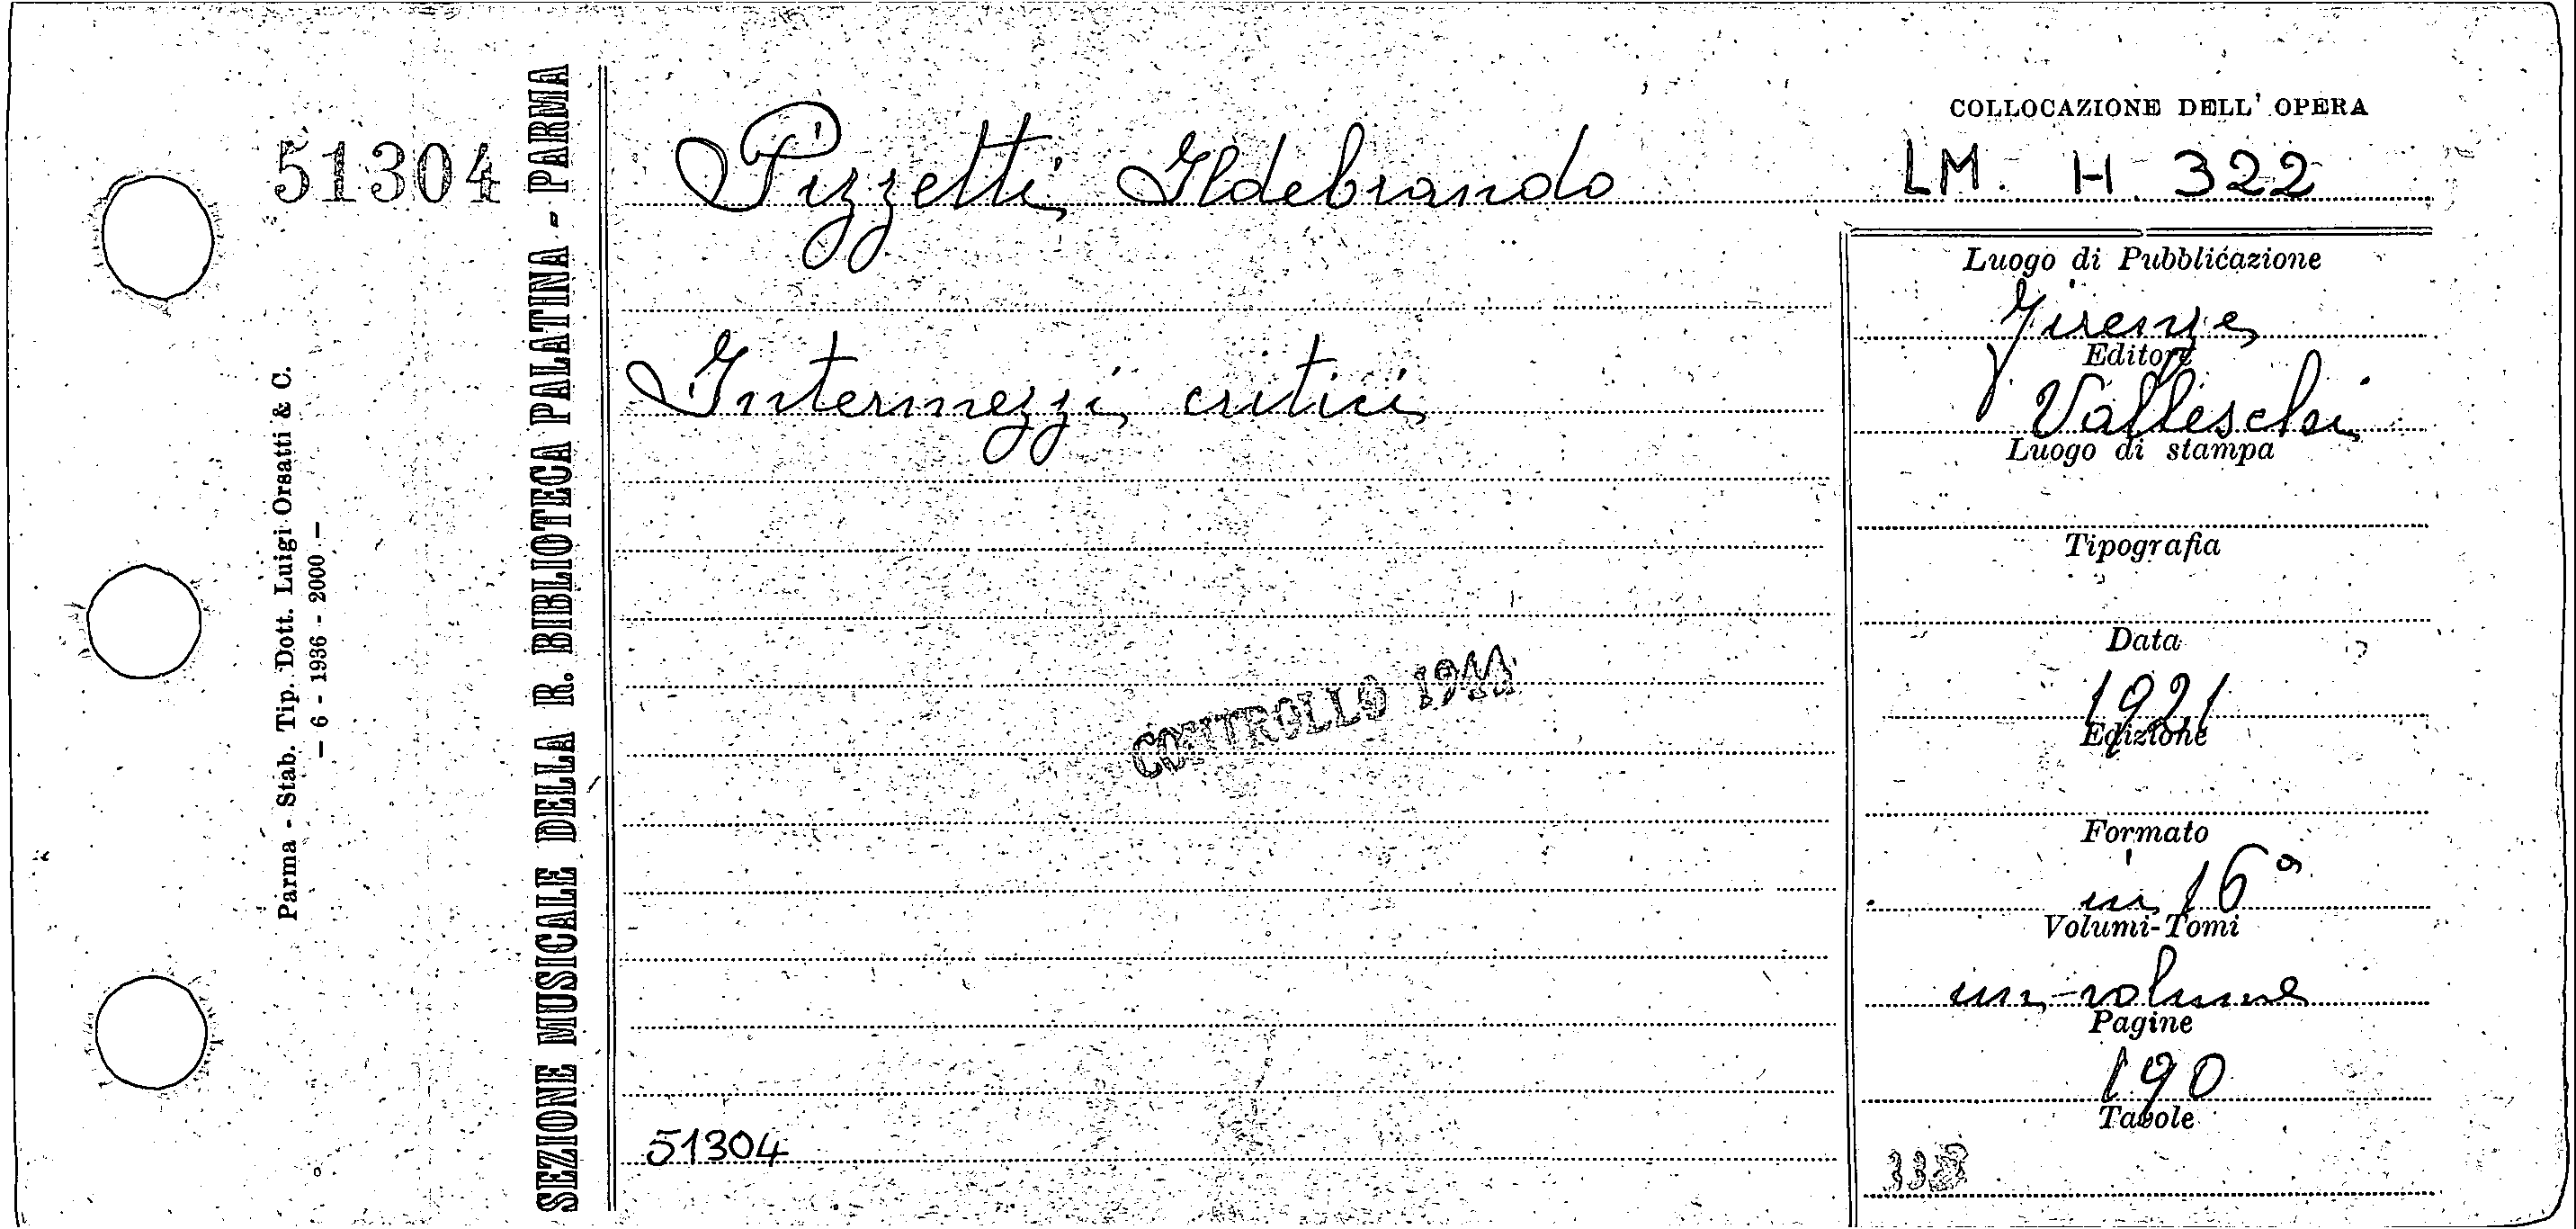 51304
Parma - Stab. Tip. Dott. Luigi Orsatti & C.
— 6 - 1936 - 2000 —
SEZIONE MUSICALE DELLA R. BIBLIOTECA PALATINA - PARMA
Pizzetti Ildebrando
Intermezzi critici
CONTROLLO 1941
51304
COLLOCAZIONE DELL' OPERA
LM. H 322
Luogo di Pubblicazione
Firenze
Editore
Valleschi
Luogo di stampa
Tipografia
Data
1921
Edizione
Formato
in 16°
Volumi-Tomi
un volume
Pagine
190
Tavole